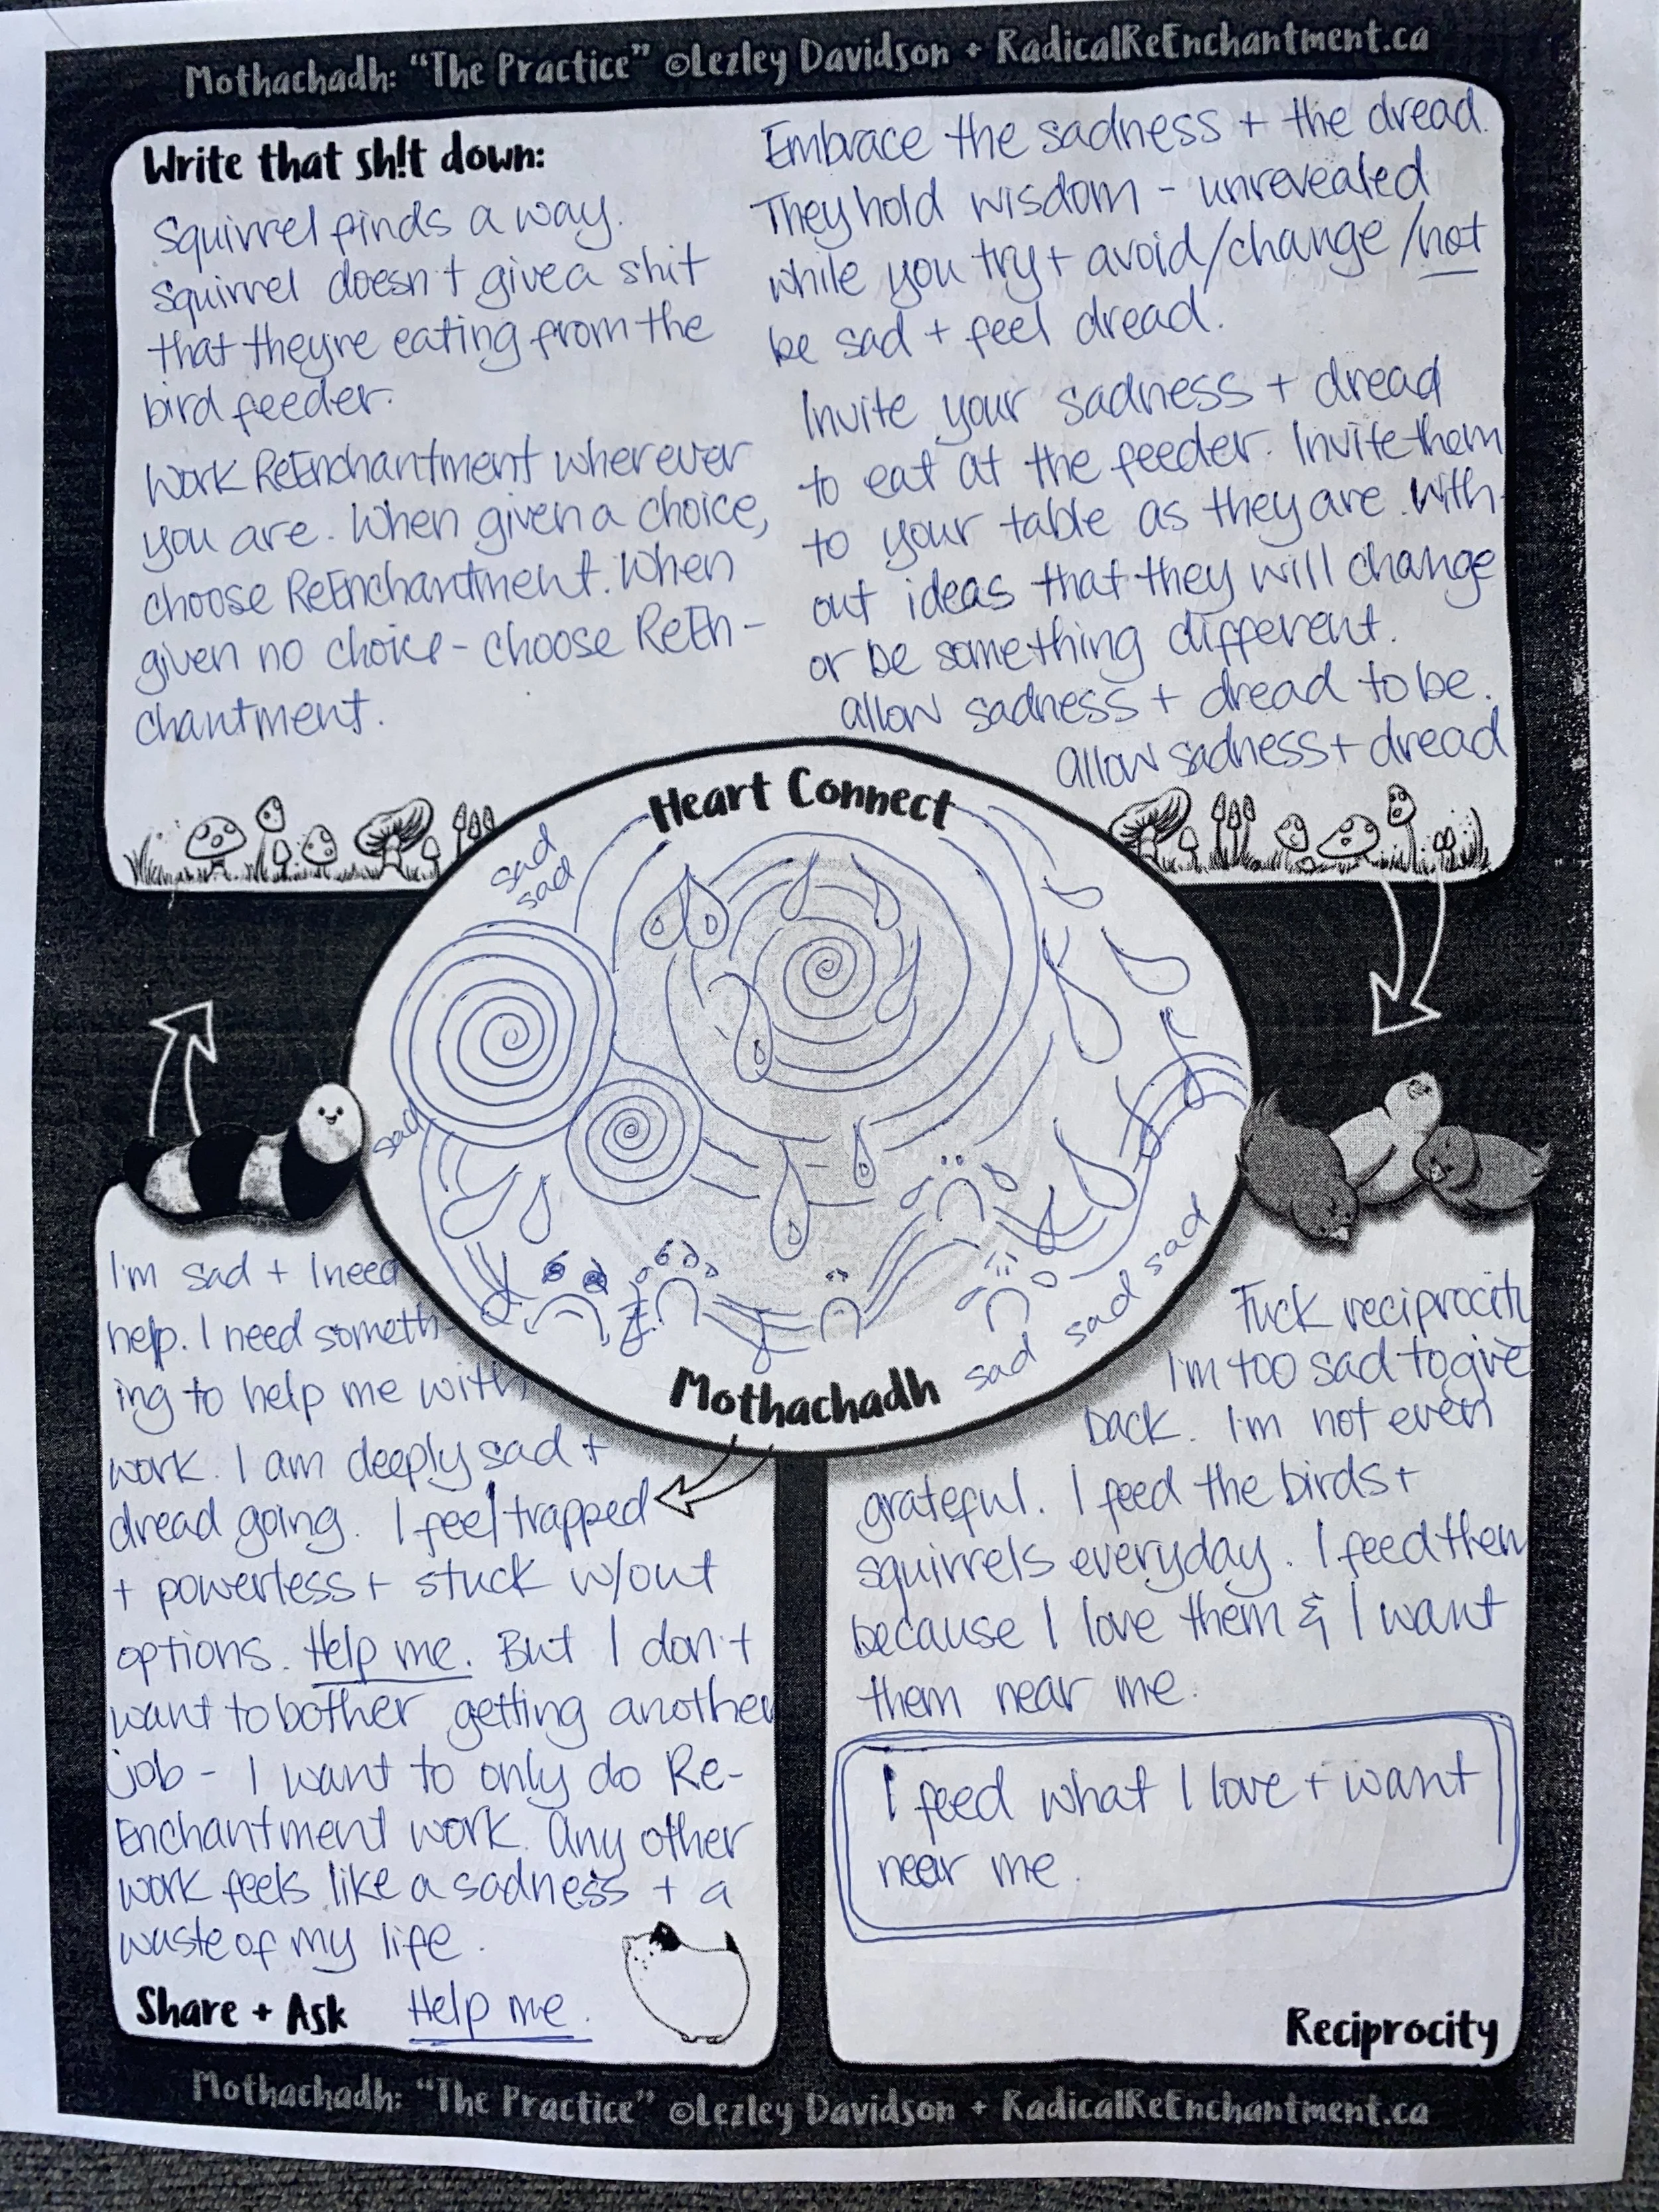 Mothachadh: "The Practice" ©Lezley Davidson + RadicalReEnchantment.ca
Write that sh!t down:
Squirrel finds a way.
Squirrel doesn't give a shit
that theyre eating from the
bird feeder.
Work ReEnchantment wherever
you are. When given a choice,
choose ReEnchantment. When
given no choice - choose ReEn-
chantment.
Embrace the sadness + the dread.
They hold wisdom - unrevealed
while you try + avoid/change/not
be sad + feel dread.
Invite your sadness + dread
to eat at the feeder. Invite them
to your table as they are. With-
out ideas that they will change
or be something different.
allow sadness + dread to be.
allow sadness + dread
Heart Connect
sad
sad
sad
sad
sad
sad
Mothachadh
I'm sad + I need
help. I need someth-
ing to help me with
work. I am deeply sad +
dread going. I feel trapped
+ powerless + stuck w/out
options. Help me. But I don't
want to bother getting another
job - I want to only do Re-
Enchantment work. Any other
work feels like a sadness + a
waste of my life.
Share + Ask Help me.
Fuck reciprocity
I'm too sad to give
back. I'm not even
grateful. I feed the birds +
squirrels everyday. I feed them
because I love them & I want
them near me.
I feed what I love + want
near me.
Reciprocity
Mothachadh: "The Practice" ©Lezley Davidson + RadicalReEnchantment.ca